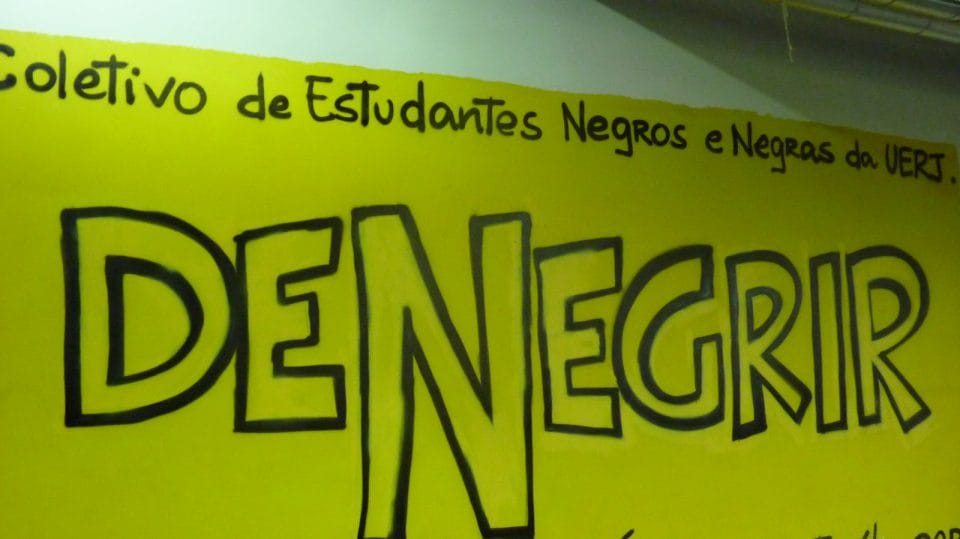 Coletivo de Estudantes Negros e Negras da UERJ.
DENEGRIR